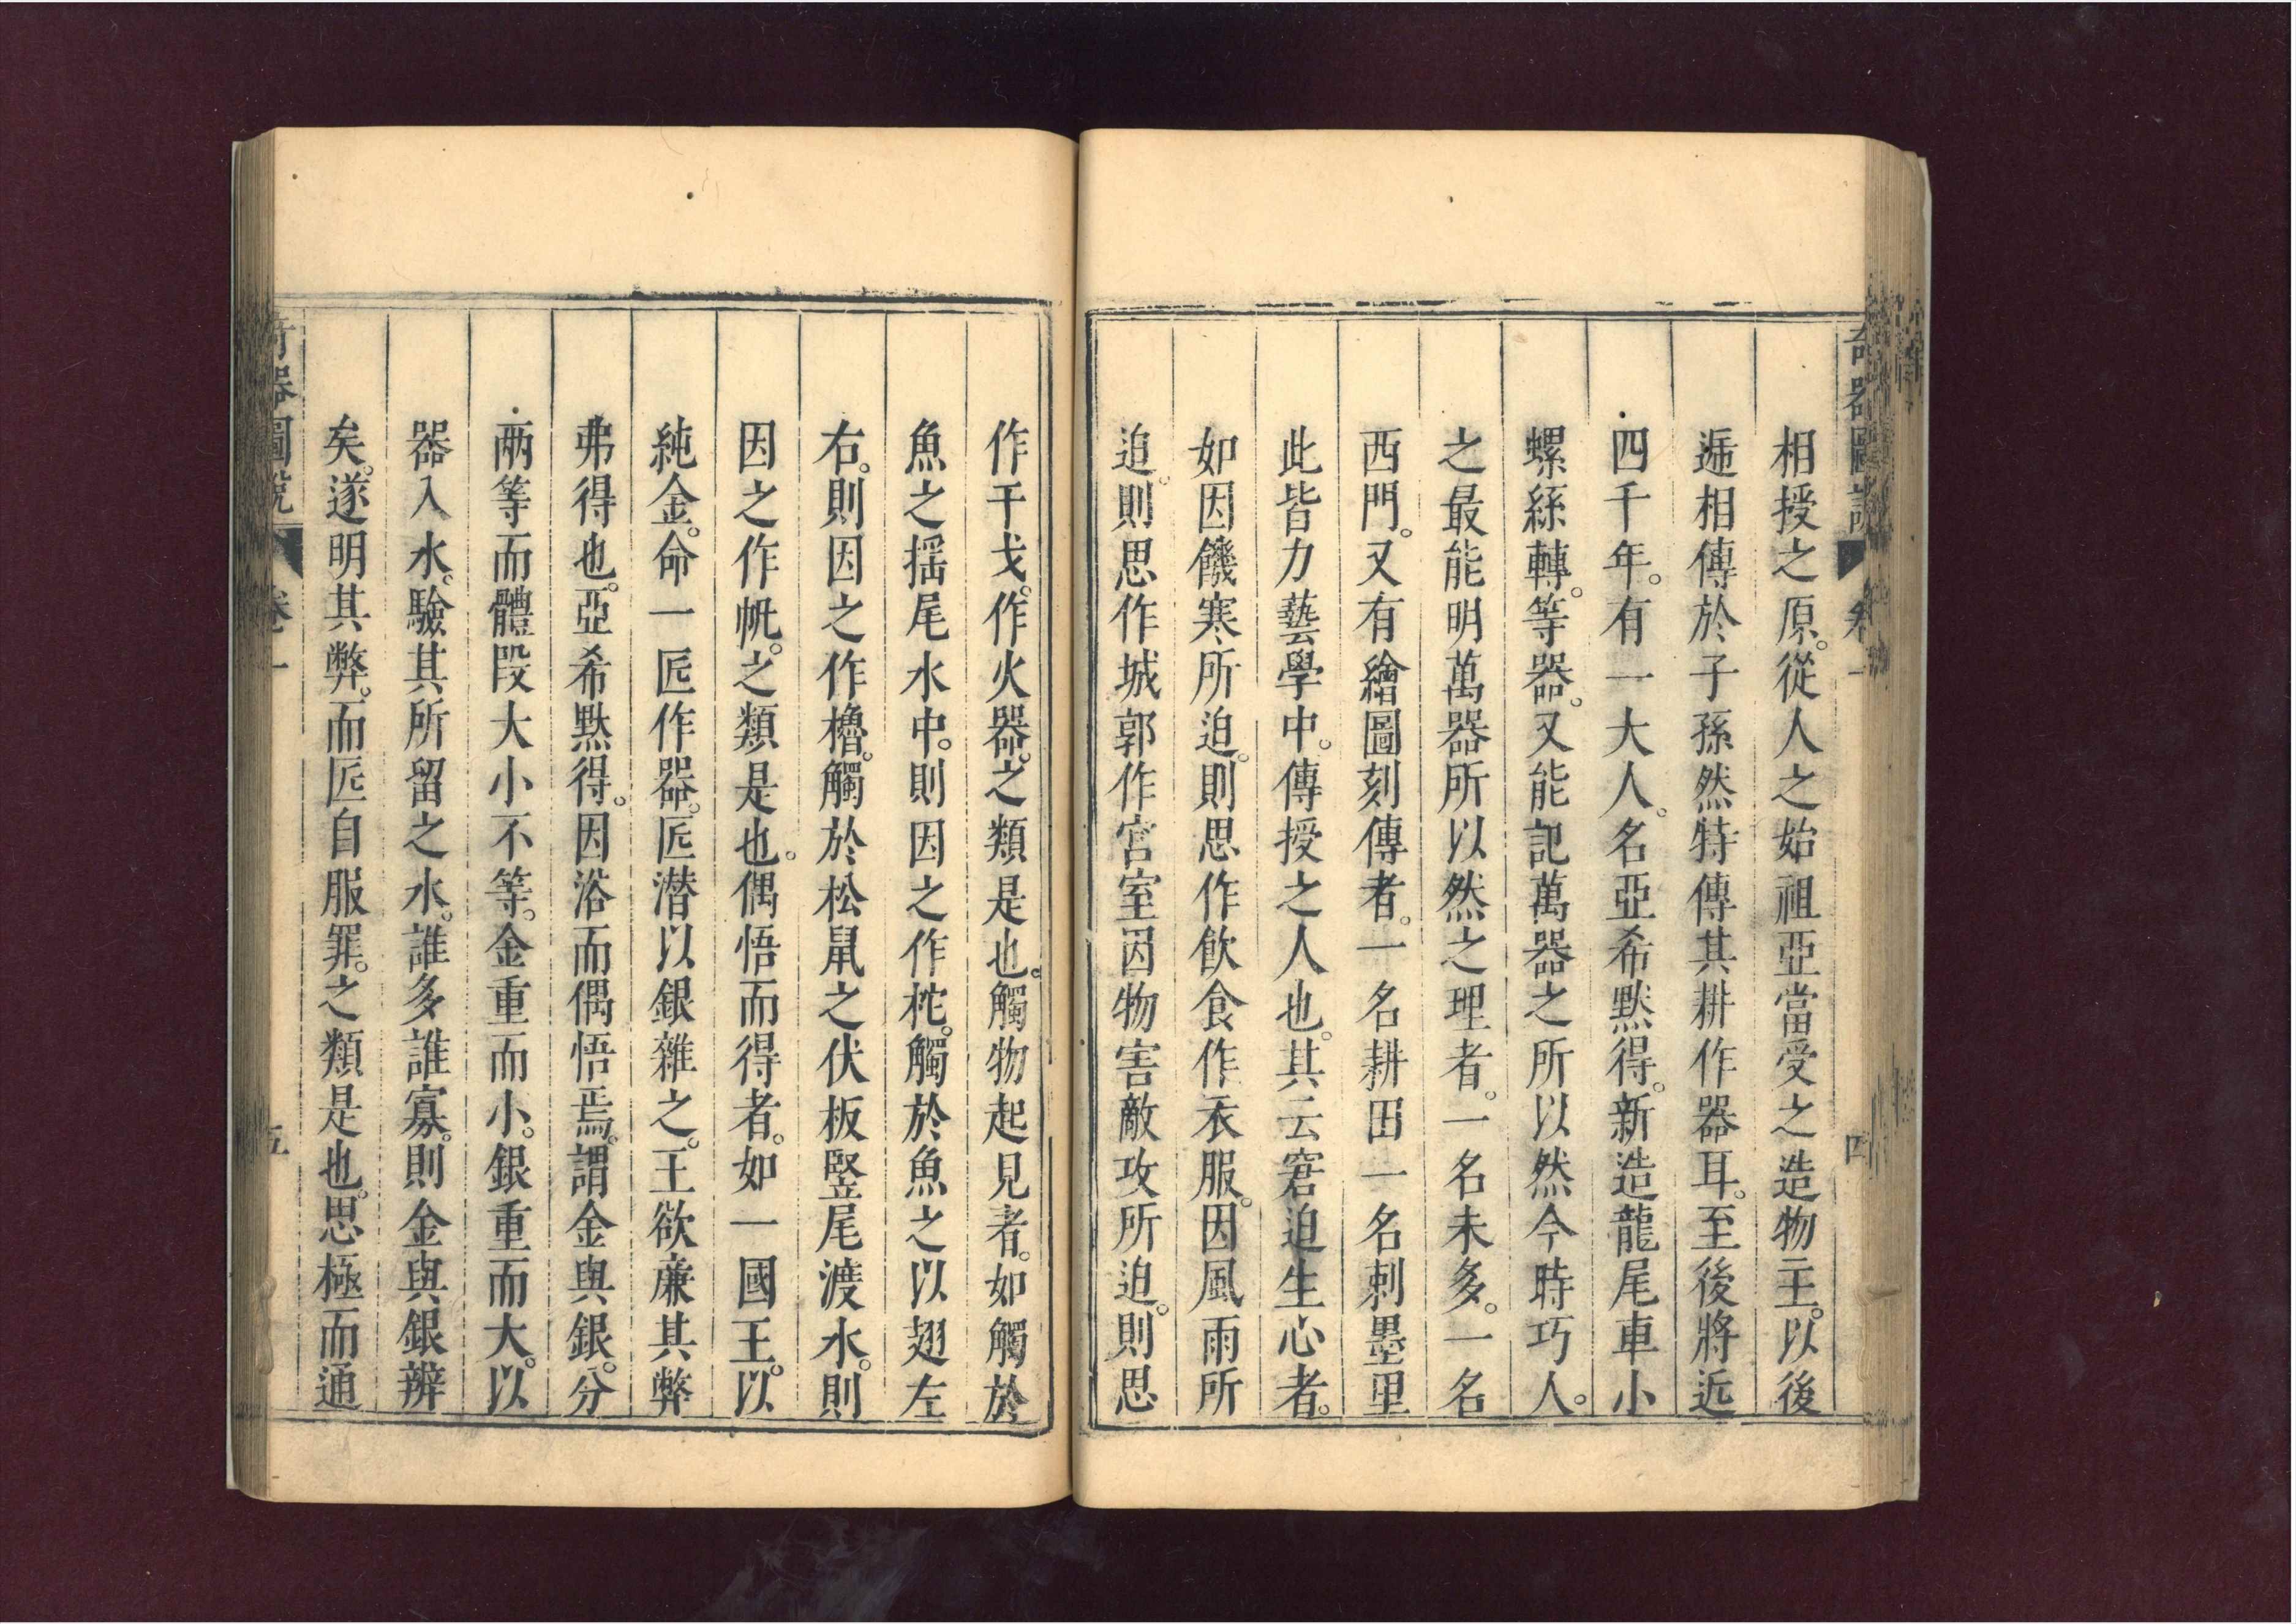 奇器圖說 卷一 四
相授之原。從人之始祖亞當受之造物主。以後
遞相傳於子孫然特傳其耕作器耳。至後將近
四千年。有一大人。名亞希黙得。新造龍尾車小
螺絲轉。等器。又能記萬器之所以然今時巧人。
之最能明萬器所以然之理者。一名未多。一名
西門。又有繪圖刻傳者。一名耕田一名刺墨里
此皆力藝學中。傳授之人也。其云窘迫生心者。
如因饑寒所迫。則思作飲食作衣服。因風雨所
迫。則思作城郭作宮室因物害敵攻所迫。則思
作干戈。作火器。之類是也。觸物起見者。如觸於
魚之揺尾水中。則因之作柁。觸於魚之以翅左
右。則因之作櫓。觸於松鼠之伏板竪尾渡水。則
因之作帆。之類是也。偶悟而得者。如一國王。以
純金。命一匠作器。匠潜以銀雜之。王欲亷其弊
弗得也。亞希黙得。因浴而偶悟焉。謂金與銀。分
兩等而體段大小不等。金重而小。銀重而大。以
器入水。驗其所留之水。誰多誰寡。則金與銀辨
矣。遂明其弊。而匠自服罪。之類是也。思極而通
奇器圖說 卷一 五